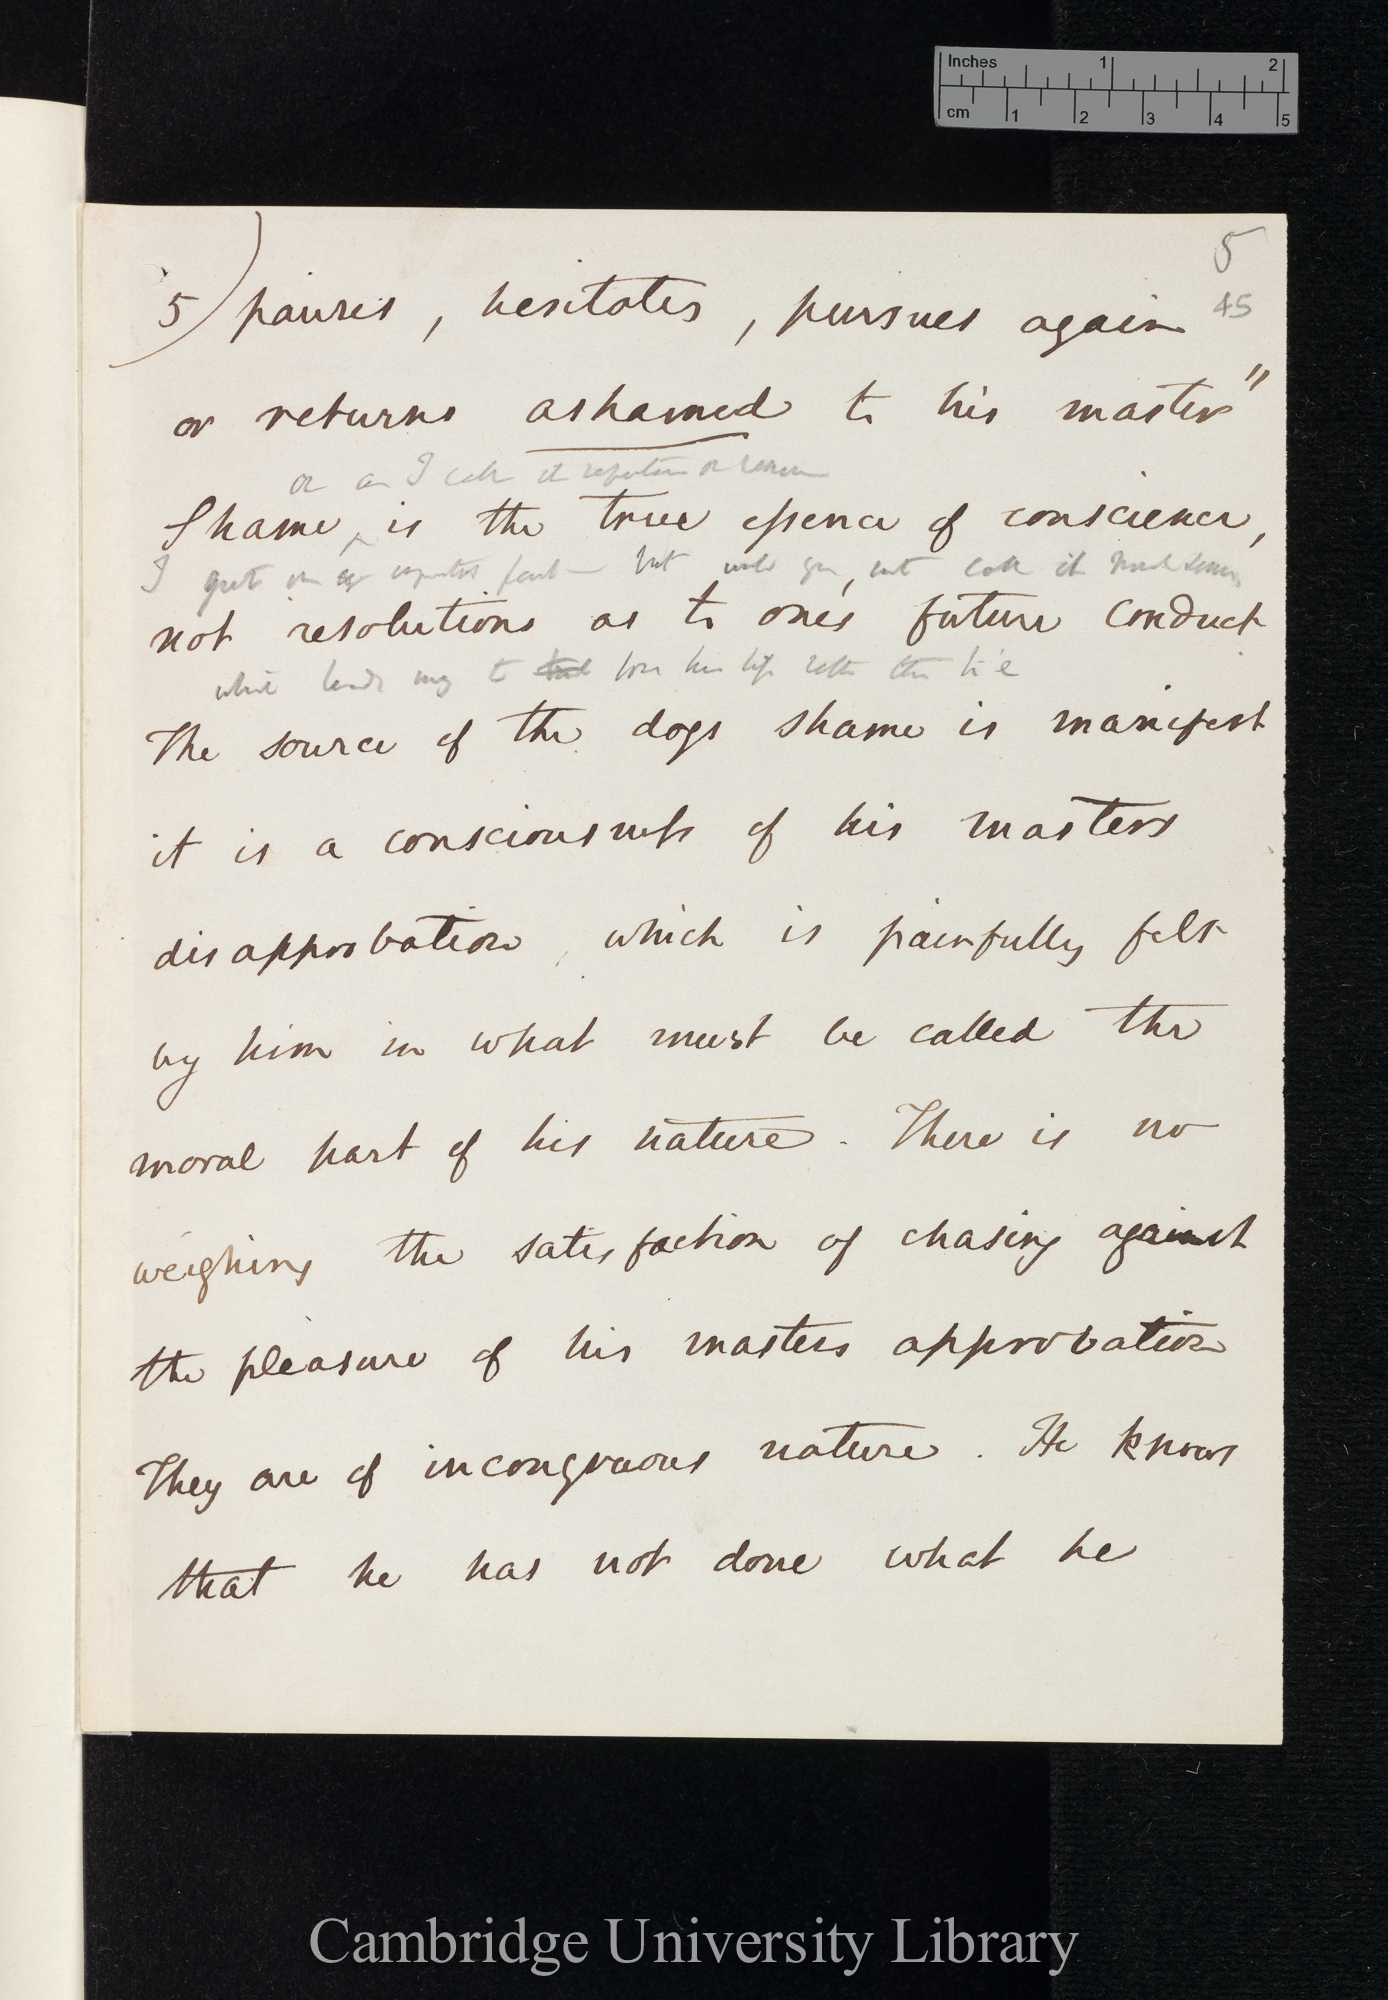 Inches 1 2
cm 1 2 3 4 5
5
45
5) pauses, hesitates, pursues again
or returns ashamed to his master"
or as I call it repentance or remorse
Shame, is the true essence of conscience,
I quite on fault — but would you not call it moral sense
not resolutions as to one's future conduct
which leads to lose his life rather than lie
The source of the dogs shame is manifest
it is a consciousness of his masters
disapprobation, which is painfully felt
by him in what must be called the
moral part of his nature. There is no
weighing the satisfaction of chasing against
the pleasure of his masters approbation
They are of incongruous nature. He knows
that he has not done what he
Cambridge University Library